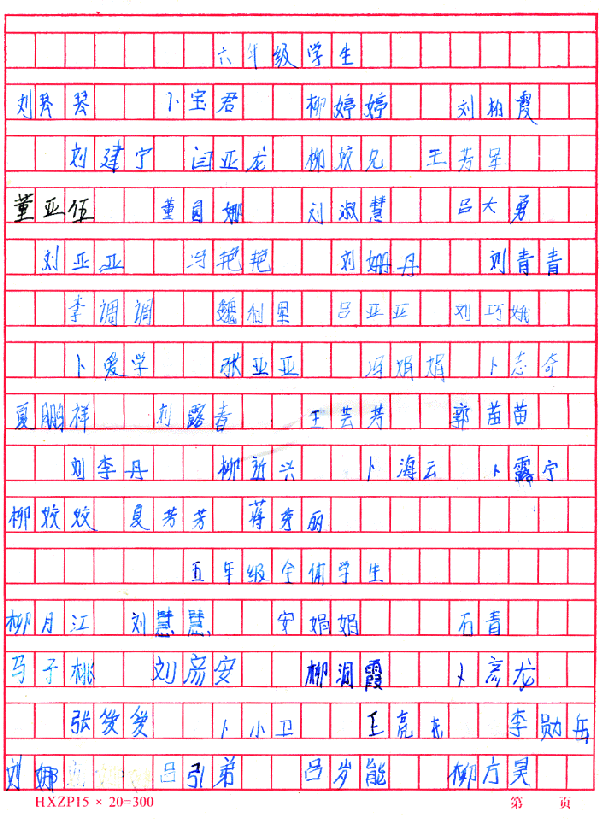 六年级学生
刘琴琴 卜宝君 柳婷婷 刘柏霞
刘建宁 闫亚龙 柳姣兄 王芳军
董亚伍 董园娜 刘淑慧 吕大勇
刘亚亚 冯艳艳 刘姗丹 刘青青
李调调 魏 星 吕亚亚 刘巧娥
卜爱学 张亚亚 冯娟娟 卜志奇
夏鹏祥 刘露春 王芸芳 郭苗苗
刘李丹 柳新兴 卜海云 卜露宁
柳姣姣 夏芳芳 蒋芬丽
五年级全体学生
柳月江 刘慧慧 安娟娟 石青
马子桃 刘彦安 柳润霞 卜彦龙
张爱爱 卜小卫 王亮东 李勋岳
刘娜 吕引弟 吕岁能 柳方昊
HXZP15 × 20=300 第 页